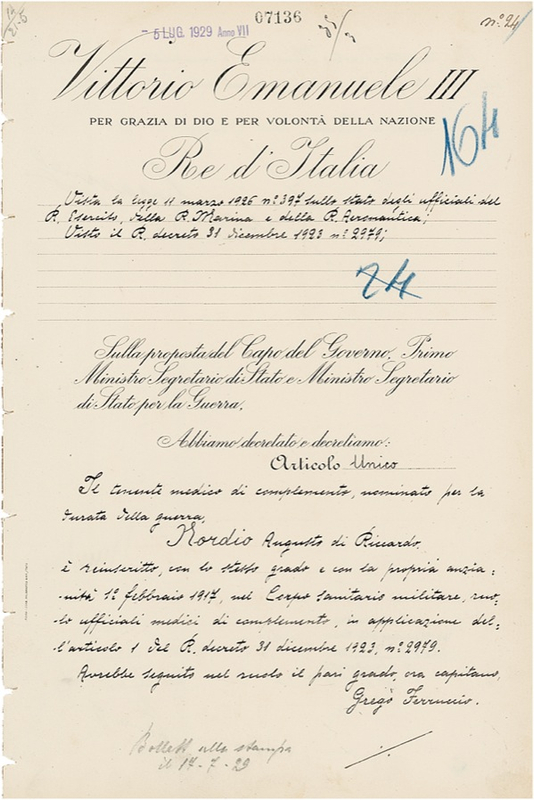 07136
nº 24
- 5 LUG. 1929 Anno VII
Vittorio Emanuele III
PER GRAZIA DI DIO E PER VOLONTÀ DELLA NAZIONE
164
Re d'Italia
Vista la legge 11 marzo 1926 nº 397 sullo stato degli ufficiali del
R. Esercito, della R. Marina e della R. Aeronautica;
Visto il R. decreto 31 dicembre 1923 nº 2979;
24
Sulla proposta del Capo del Governo, Primo
Ministro Segretario di Stato e Ministro Segretario
di Stato per la Guerra,
Abbiamo decretato e decretiamo:
Articolo Unico
Il tenente medico di complemento, nominato per la
durata della guerra,
Nordio Augusto di Riccardo,
è reinscritto, con lo stesso grado e con la propria anzia=
nità 1º febbraio 1917, nel Corpo sanitario militare, ruo=
lo ufficiali medici di complemento, in applicazione del=
l'articolo 1 del R. decreto 31 dicembre 1923, nº 2979.
Avrebbe seguito nel ruolo il pari grado, ora capitano,
Gregò Ferruccio.
Bollett. alla stampa
il 17-7-29